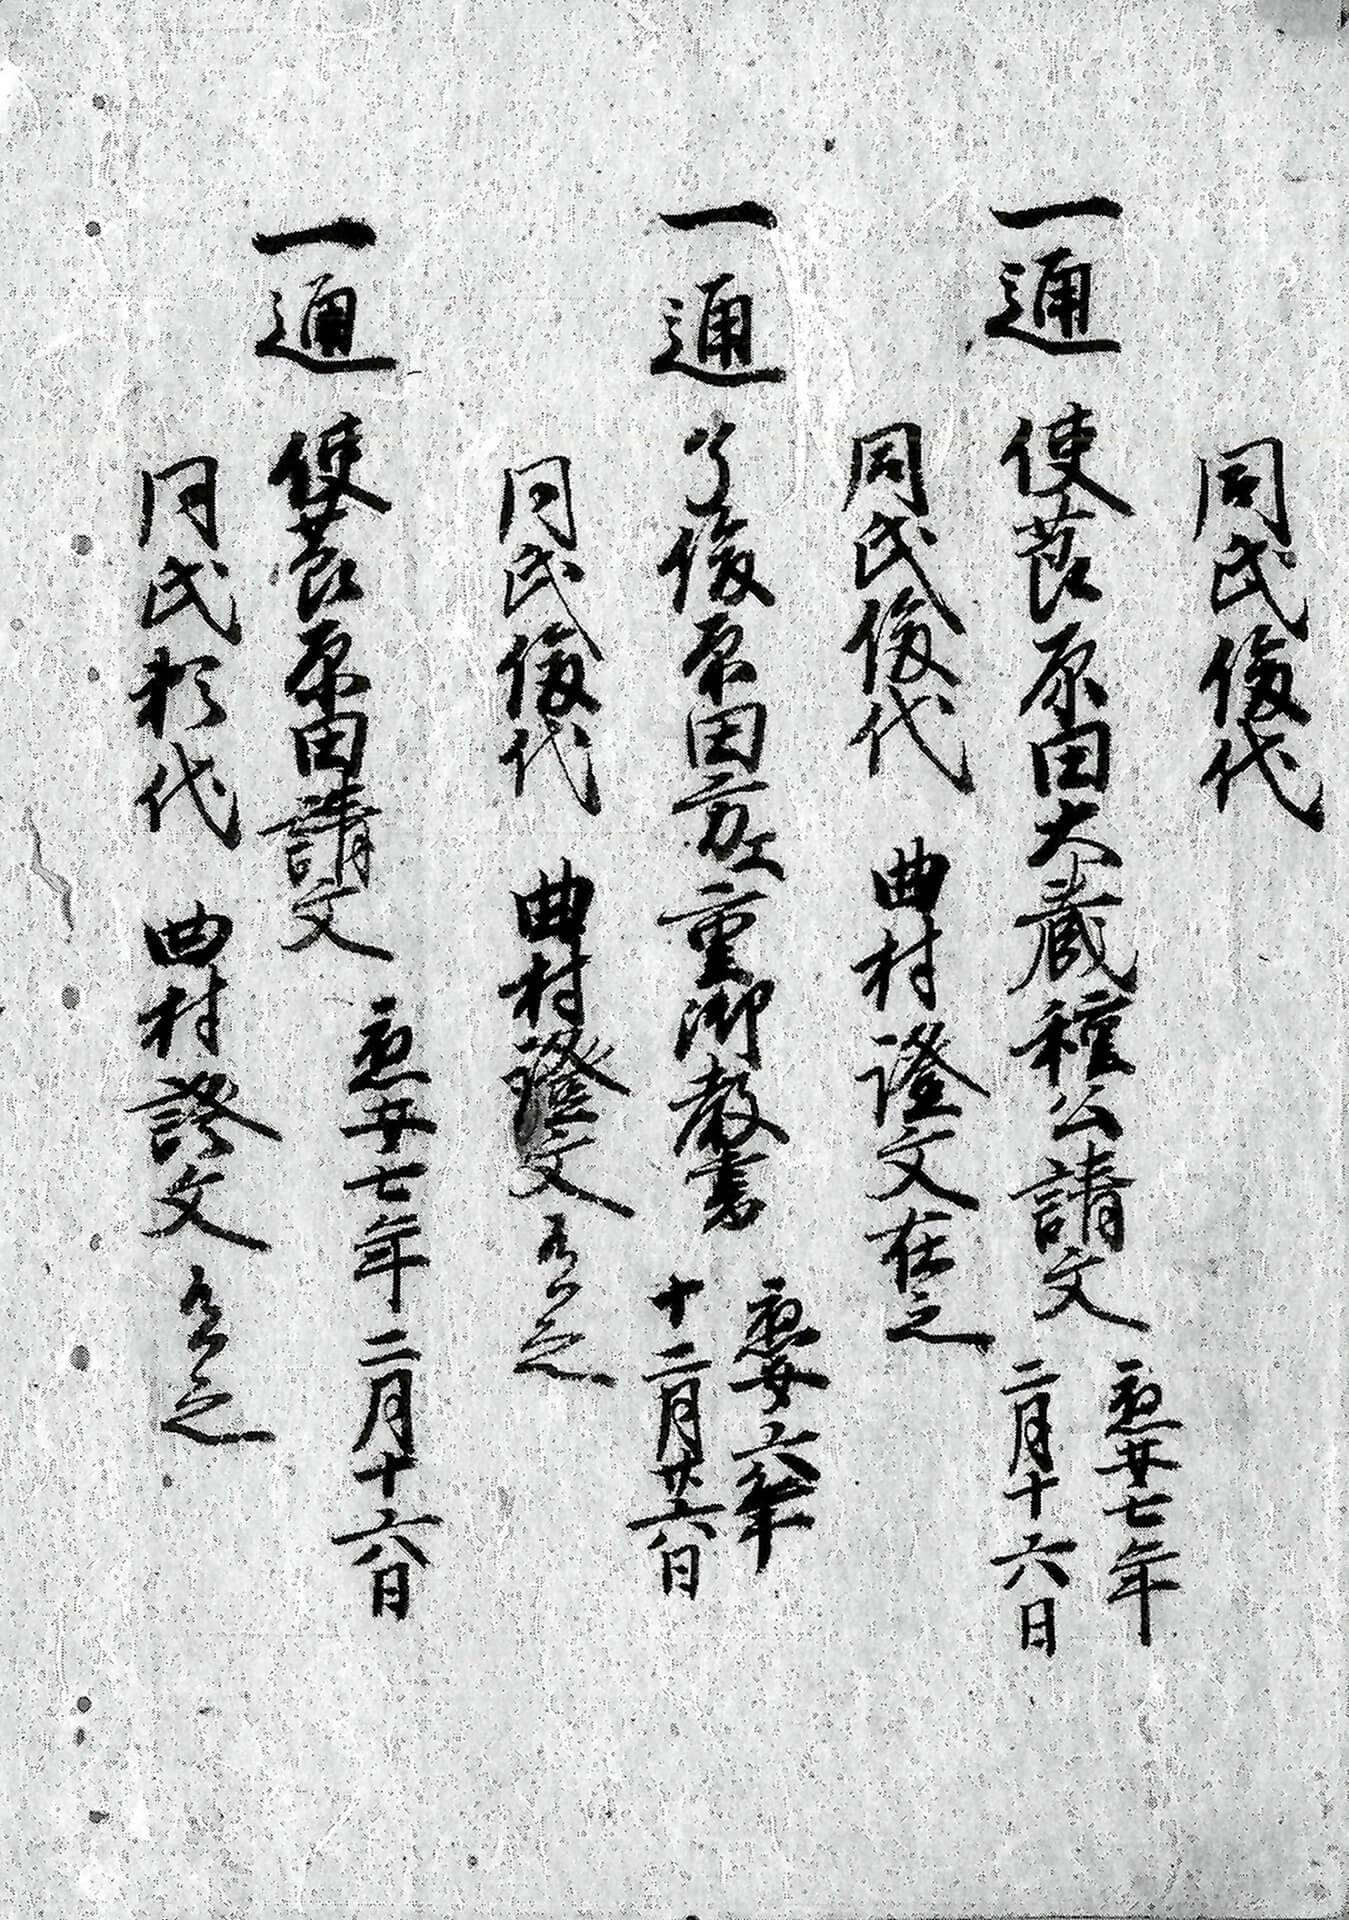 同氏俊代
一通 使莒原田大蔵種公請文 応安七年
二月十六日
同氏俊代 曲村證文在之
一通 了俊原田方江重御教書 応安六年
十二月廿六日
同氏俊代 曲村證文有之
一通 使莒原田請文 応安七年二月十六日
同氏代 曲村證文有之